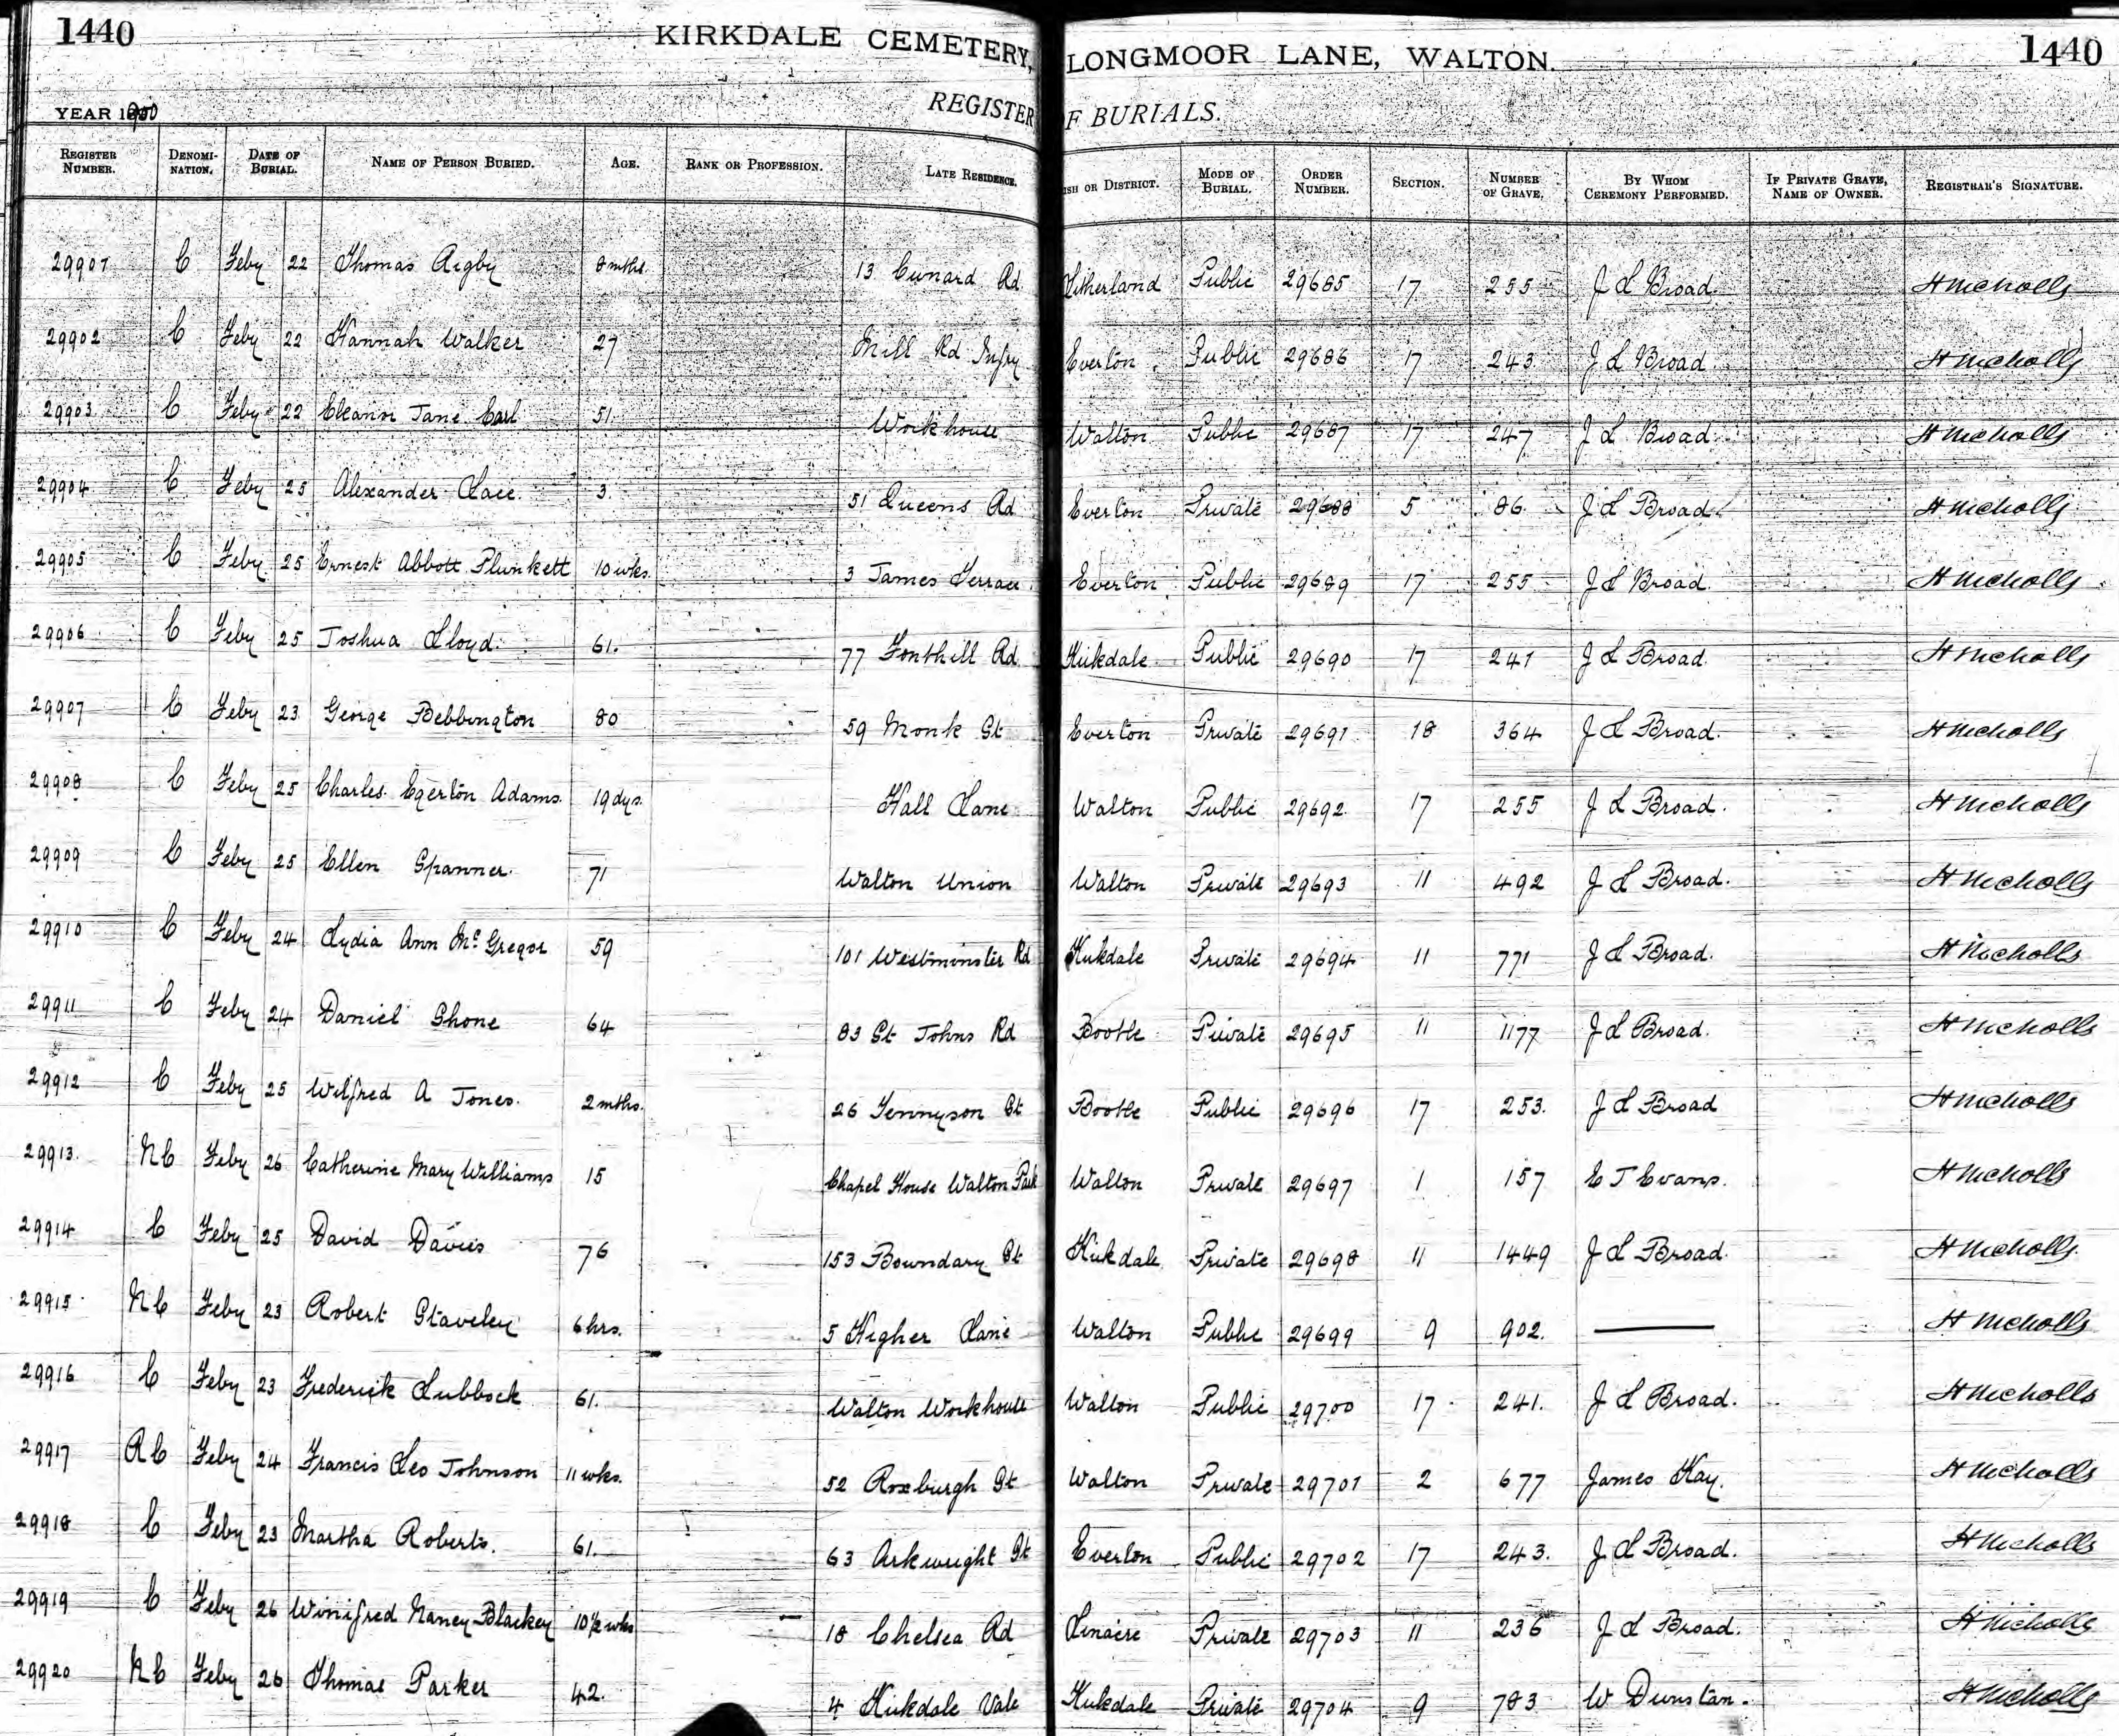 1440 KIRKDALE CEMETERY, LONGMOOR LANE, WALTON. 1440
YEAR 1900 REGISTER F BURIALS.
REGISTER NUMBER. DENOMI-NATION. DATE OF BURIAL. NAME OF PERSON BURIED. AGE. RANK OR PROFESSION. LATE RESIDENCE. ISH OR DISTRICT. MODE OF BURIAL. ORDER NUMBER. SECTION. NUMBER OF GRAVE. BY WHOM CEREMONY PERFORMED. IF PRIVATE GRAVE, NAME OF OWNER. REGISTRAR'S SIGNATURE.
29901 C Feby 22 Thomas Rigby 8 mths. 13 Cunard Rd Litherland Public 29685 17 255 J L Broad. H Nicholls
29902 C Feby 22 Hannah Walker 27 Mill Rd Infry Everton Public 29686 17 243 J L Broad H Nicholls
29903 C Feby 22 Eleanor Jane Earl 51. Workhouse Walton Public 29687 17 247 J L Broad H Nicholls
29904 C Feby 25 Alexander Lace. 3. 51 Queens Rd Everton Private 29688 5 86 J L Broad H Nicholls
29905 C Feby 25 Ernest Abbott Plunkett 10 wks. 3 James Terrace Everton Public 29689 17 255 J L Broad. H Nicholls
29906 C Feby 25 Joshua Lloyd. 61. 77 Fonthill Rd Kirkdale Public 29690 17 241 J L Broad. H Nicholls
29907 C Feby 23 George Bebbington 80 59 Monk St Everton Private 29691 18 364 J L Broad. H Nicholls
29908 C Feby 25 Charles Egerton Adams. 19 dys. Hall Lane Walton Public 29692 17 255 J L Broad. H Nicholls
29909 C Feby 25 Ellen Spanner. 71 Walton Union Walton Private 29693 11 492 J L Broad. H Nicholls
29910 C Feby 24 Lydia Ann McGregor 59 101 Westminster Rd Kirkdale Private 29694 11 771 J L Broad. H Nicholls
29911 C Feby 24 Daniel Shone 64 83 St Johns Rd Bootle Private 29695 11 1177 J L Broad. H Nicholls
29912 C Feby 25 Wilfred A Jones. 2 mths. 26 Tennyson St Bootle Public 29696 17 253. J L Broad H Nicholls
29913 NC Feby 26 Catherine Mary Williams 15 Chapel House Walton Park Walton Private 29697 1 157 E J Evans. H Nicholls
29914 C Feby 25 David Davies 76 153 Boundary St Kirkdale Private 29698 11 1449 J L Broad. H Nicholls.
29915 NC Feby 23 Robert Staveley 6 hrs. 5 Higher Lane Walton Public 29699 9 902. H Nicholls
29916 C Feby 23 Frederick Lubbock 61. Walton Workhouse Walton Public 29700 17 241. J L Broad. H Nicholls
29917 RC Feby 24 Francis Leo Johnson 11 wks. 52 Roxburgh St Walton Private 29701 2 677 James Kay. H Nicholls
29918 C Feby 23 Martha Roberts. 61. 63 Arkwright St Everton Public 29702 17 243. J L Broad. H Nicholls
29919 C Feby 26 Winifred Nancy Blackey 10½ wks 18 Chelsea Rd Linacre Private 29703 11 236 J L Broad. H Nicholls
29920 NC Feby 26 Thomas Parker 42. 4 Kirkdale Vale Kirkdale Private 29704 9 783 W Dunstan. H Nicholls